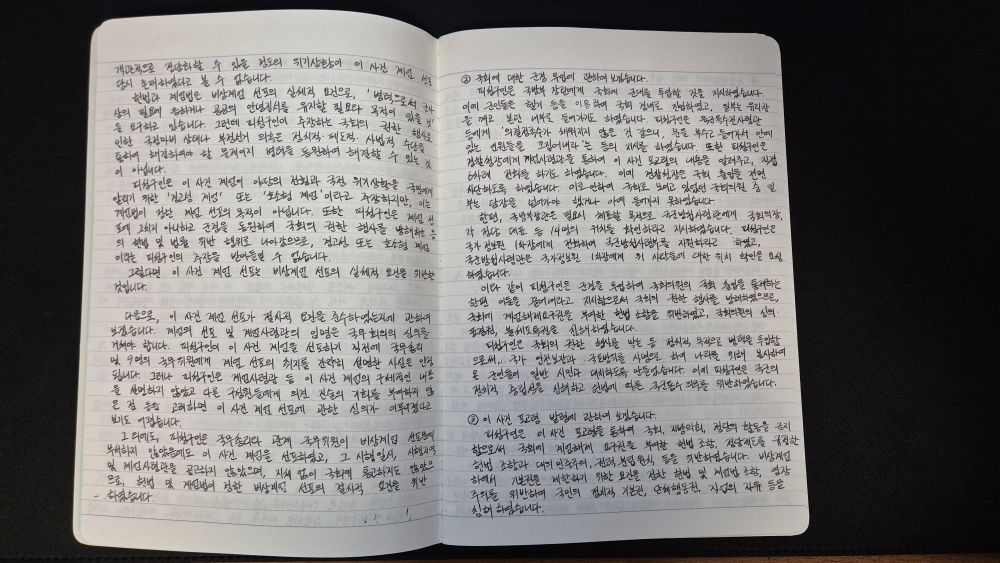 객관적으로 정당화할 수 있을 정도의 위기상황이 이 사건 계엄 선포
당시 존재하였다고 볼 수 없습니다.
헌법과 계엄법은 비상계엄 선포의 실체적 요건으로, '병력으로써 군사
상의 필요에 응하거나 공공의 안녕질서를 유지할 필요와 목적이 있을 것'
을 요구하고 있습니다. 그런데 피청구인이 주장하는 국회의 권한 행사로
인한 국정마비 상태나 부정선거 의혹은 정치적·제도적·사법적 수단을
통하여 해결하여야 할 문제이지 병력을 동원하여 해결할 수 있는 것
이 아닙니다.
피청구인은 이 사건 계엄이 야당의 전횡과 국정 위기상황을 국민에게
알리기 위한 '경고성 계엄' 또는 '호소형 계엄'이라고 주장하지만, 이는
계엄법이 정한 계엄 선포의 목적이 아닙니다. 또한 피청구인은 계엄 선
포에 그치지 아니하고 군경을 동원하여 국회의 권한 행사를 방해하는 등
의 헌법 및 법률 위반 행위로 나아갔으므로, 경고성 또는 호소형 계엄
이라는 피청구인의 주장을 받아들일 수 없습니다.
그렇다면 이 사건 계엄 선포는 비상계엄 선포의 실체적 요건을 위반한
것입니다.
다음으로, 이 사건 계엄 선포가 절차적 요건을 준수하였는지에 관하여
보겠습니다. 계엄의 선포 및 계엄사령관의 임명은 국무회의의 심의를
거쳐야 합니다. 피청구인이 이 사건 계엄을 선포하기 직전에 국무총리
및 9명의 국무위원에게 계엄 선포의 취지를 간략히 설명한 사실은 인정
됩니다. 그러나 피청구인은 계엄사령관 등 이 사건 계엄의 구체적인 내용
을 설명하지 않았고 다른 구성원들에게 의견 진술의 기회를 부여하지 않
은 점 등을 고려하면 이 사건 계엄 선포에 관한 심의가 이루어졌다고
보기도 어렵습니다.
그 외에도, 피청구인은 국무총리와 관계 국무위원이 비상계엄 선포문에
부서하지 않았음에도 이 사건 계엄을 선포하였고, 그 시행일시, 시행지역
및 계엄사령관을 공고하지 않았으며, 지체 없이 국회에 통고하지도 않았으
므로, 헌법 및 계엄법이 정한 비상계엄 선포의 절차적 요건을 위반
하였습니다.
② 국회에 대한 군경 투입에 관하여 보겠습니다.
피청구인은 국방부 장관에게 국회에 군대를 투입할 것을 지시하였습니다.
이에 군인들은 헬기 등을 이용하여 국회 경내로 진입하였고, 일부는 유리창
을 깨고 본관 내부로 들어가기도 하였습니다. 피청구인은 육군특수전사령관
등에게 '의결정족수가 채워지지 않은 것 같으니, 문을 부수고 들어가서 안에
있는 인원들을 끄집어내라'는 등의 지시를 하였습니다. 또한 피청구인은
경찰청장에게 계엄사령관을 통하여 이 사건 포고령의 내용을 알려주고, 직접
6차례 전화를 하기도 하였습니다. 이에 경찰청장은 국회 출입을 전면
차단하도록 하였습니다. 이로 인하여 국회로 모이고 있었던 국회의원 중 일
부는 담장을 넘어가야 했거나 아예 들어가지 못하였습니다.
한편, 국방부장관은 필요시 체포할 목적으로 국군방첩사령관에게 국회의장,
각 정당 대표 등 14명의 위치를 확인하라고 지시하였습니다. 피청구인은
국가정보원 1차장에게 전화하여 국군방첩사령부를 지원하라고 하였고,
국군방첩사령관은 국가정보원 1차장에게 위 사람들에 대한 위치 확인을 요청
하였습니다.
이와 같이 피청구인은 군경을 투입하여 국회의원의 국회 출입을 통제하는
한편 이들을 끌어내라고 지시함으로써 국회의 권한 행사를 방해하였으므로,
국회에 계엄해제요구권을 부여한 헌법 조항을 위반하였고, 국회의원의 심의·
표결권, 불체포특권을 침해하였습니다.
피청구인은 국회의 권한 행사를 막는 등 정치적 목적으로 병력을 투입함
으로써, 국가 안전보장과 국토방위를 사명으로 하여 나라를 위해 봉사하여
온 군인들이 일반 시민과 대치하도록 만들었습니다. 이에 피청구인은 국군의
정치적 중립성을 침해하고 헌법에 따른 국군통수 의무를 위반하였습니다.
③ 이 사건 포고령 발령에 관하여 보겠습니다.
피청구인은 이 사건 포고령을 통하여 국회, 지방의회, 정당의 활동을 금지
함으로써 국회에 계엄해제 요구권을 부여한 헌법 조항, 정당제도를 규정한
헌법 조항과 대의민주주의, 권력분립원칙 등을 위반하였습니다. 비상계엄
하에서 기본권을 제한하기 위한 요건을 정한 헌법 및 계엄법 조항, 영장
주의를 위반하여 국민의 정치적 기본권, 단체행동권, 직업의 자유 등을
침해하였습니다.